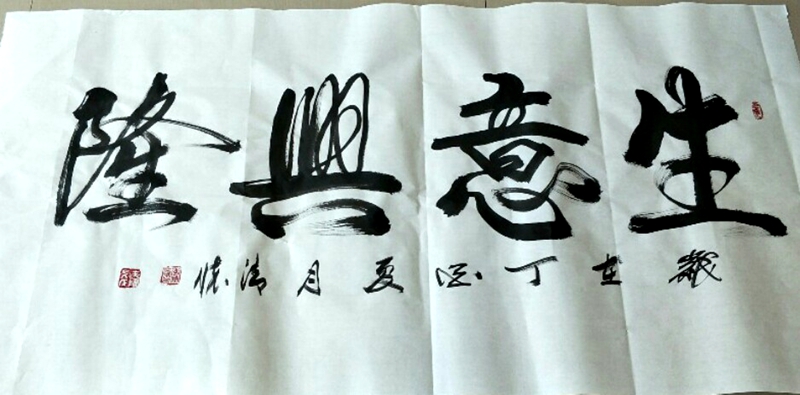 生意興隆
歲在丁酉夏月